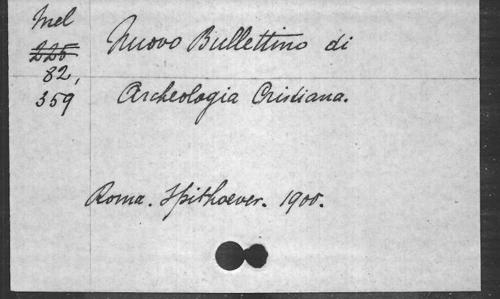 Mel
225
82,
359
Nuovo Bullettino di
Archeologia Cristiana.
Roma. Spithoever. 1900.